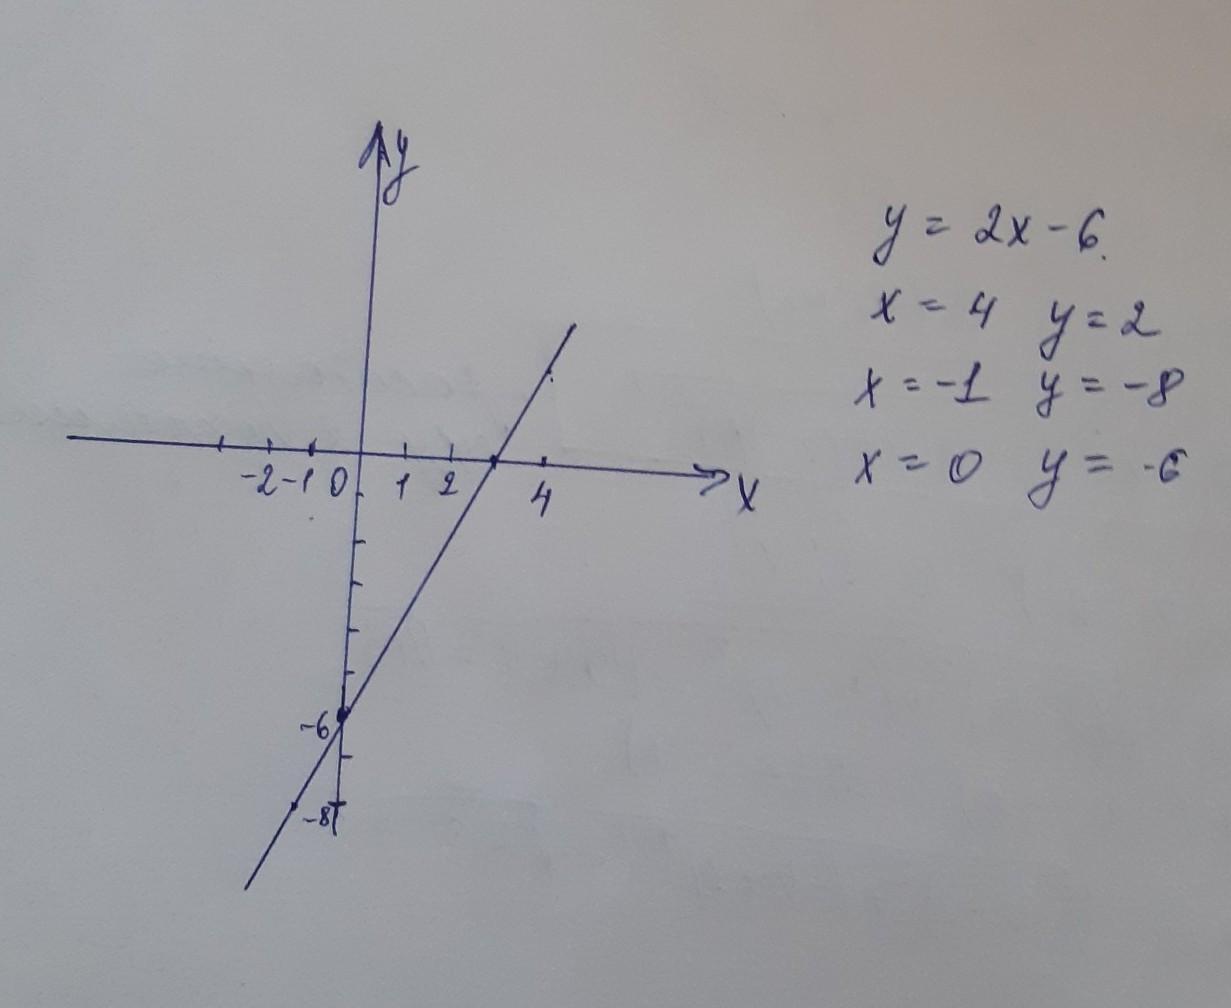 y
-2 -1 0 1 2 4 x
-6
-8
y = 2x - 6.
x = 4 y = 2
x = -1 y = -8
x = 0 y = -6